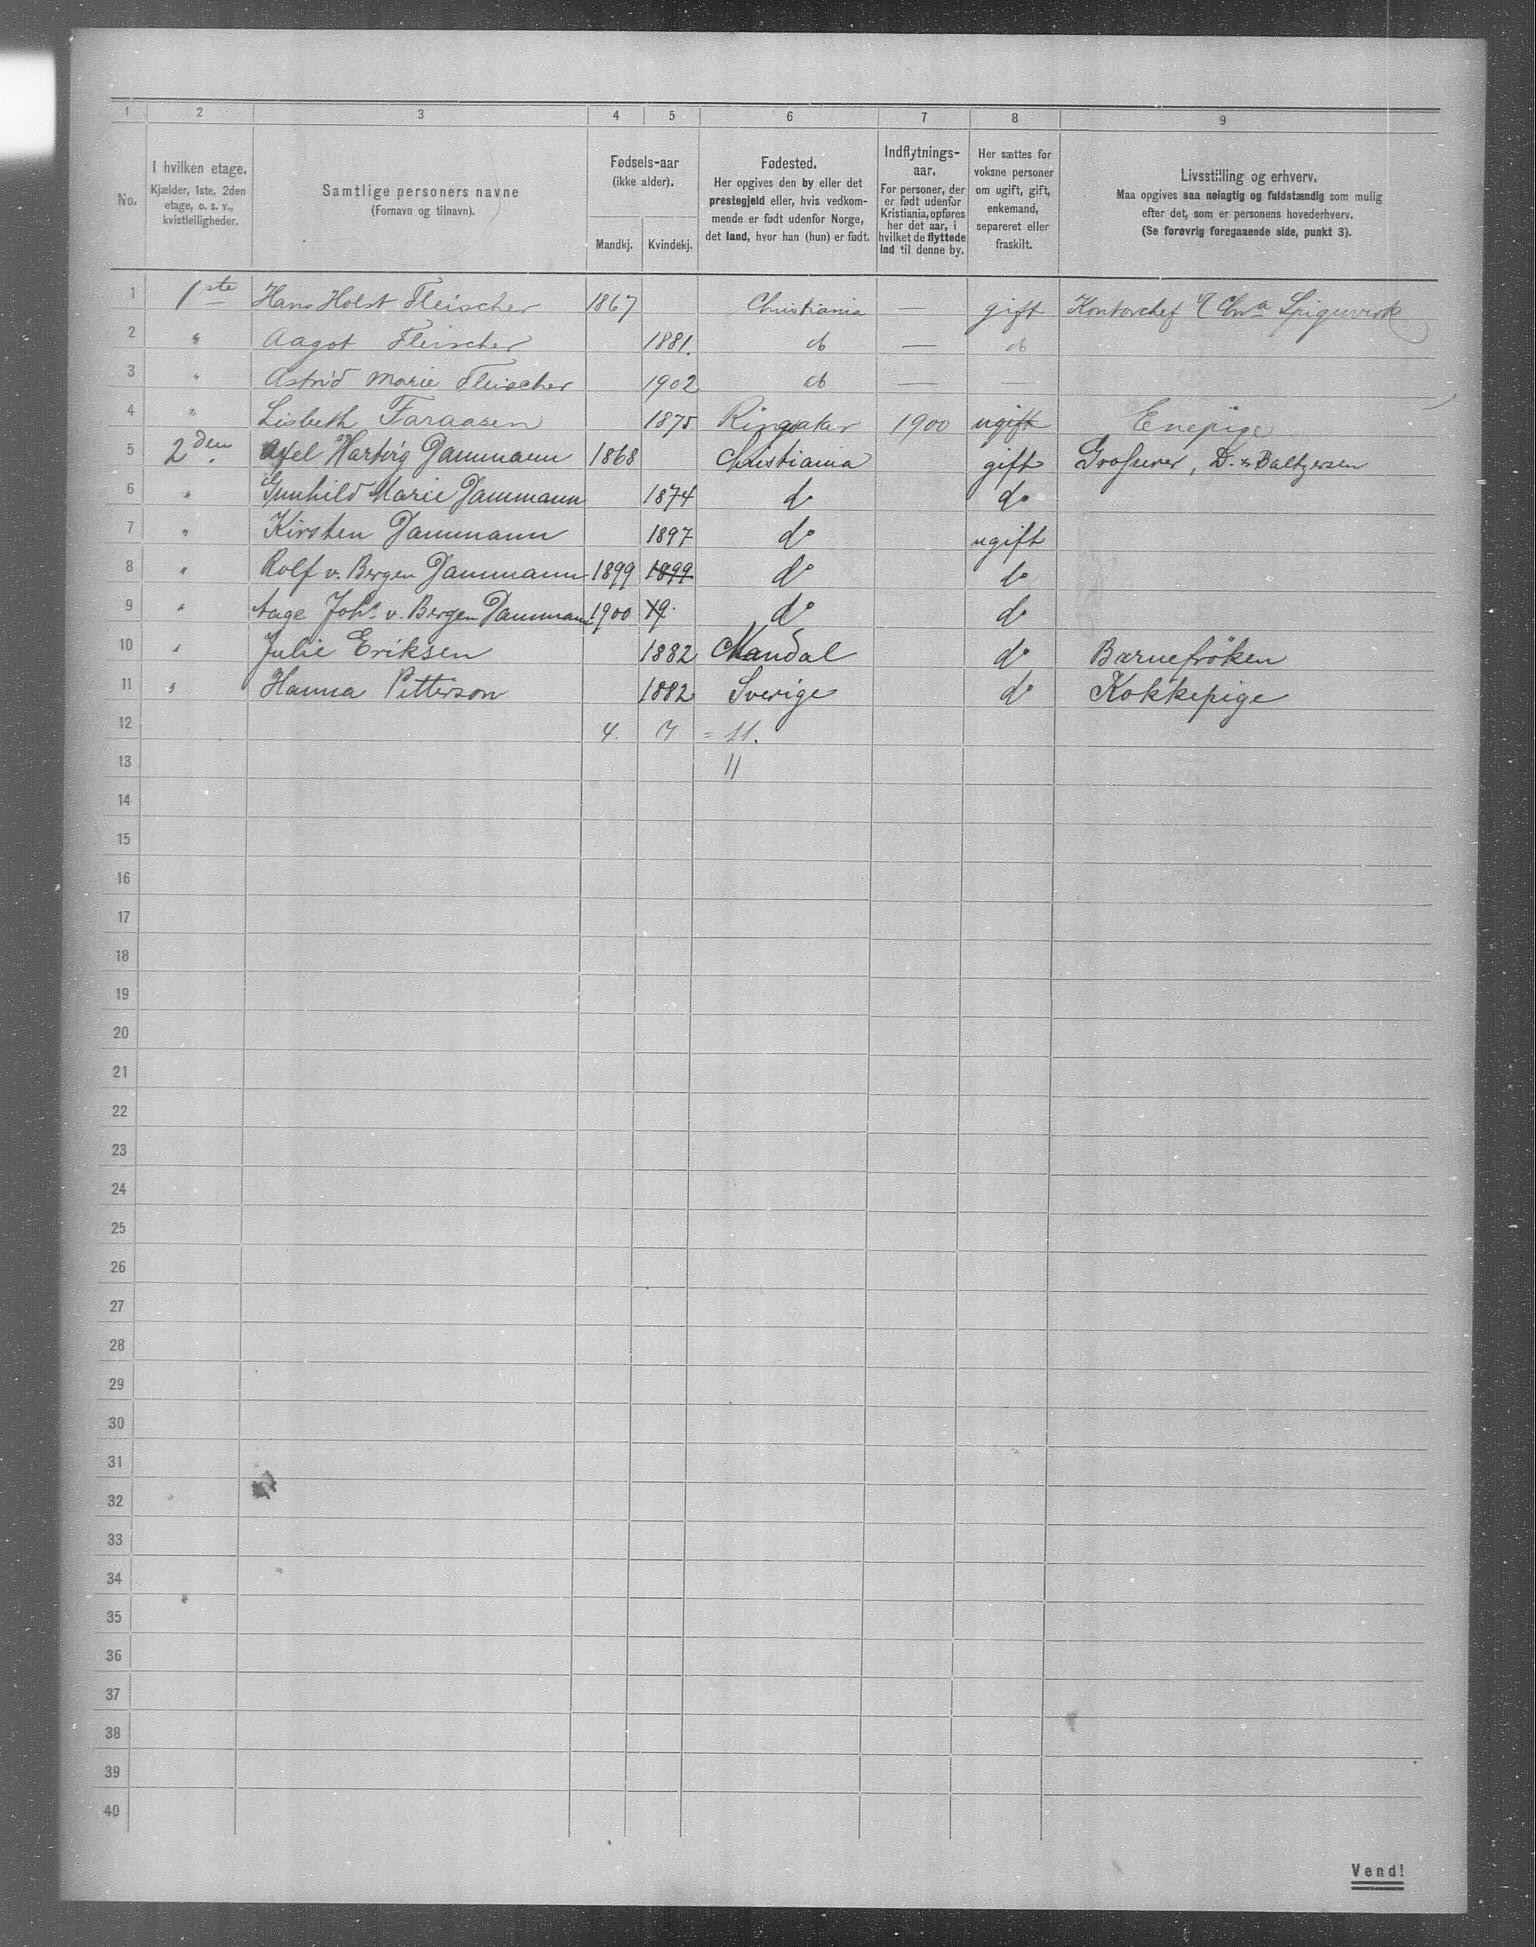 1 2 3 4 5 6 7 8 9
No.
I hvilken etage.
Kjælder, 1ste, 2den
etage, o. s. v.,
kvistleiligheder.
Samtlige personers navne
(Fornavn og tilnavn).
Fødsels-aar
(ikke alder).
Mandkj. Kvindekj.
Fødested.
Her opgives den by eller det
prestegjeld eller, hvis vedkom-
mende er født udenfor Norge,
det land, hvor han (hun) er født.
Indflytnings-
aar.
For personer, der
er født udenfor
Kristiania, opføres
her det aar, i
hvilket de flyttede
ind til denne by.
Her sættes for
voksne personer
om ugift, gift,
enkemand,
separeret eller
fraskilt.
Livsstilling og erhverv.
Maa opgives saa nøiagtig og fuldstændig som mulig
efter det, som er personens hovederhverv.
(Se forøvrig foregaaende side, punkt 3).
1 1ste Hans Holst Fleischer 1867 Christiania — gift Kontorchef Chra Spigerverk
2 " Aagot Fleischer 1881. do — do
3 " Astrid Marie Fleischer 1902 do — —
4 " Lisbeth Faraasen 1875 Ringsaker 1900 ugift Enepige
5 2den. Axel Hartvig Dammann 1868 Christiania gift Grosserer, D. & Baltzersen
6 " Gunhild Marie Dammann 1874 do do
7 " Kirsten Dammann 1897 do ugift
8 " Rolf v. Bergen Dammann 1899 1899 do do
9 " Aage Johs. v. Bergen Dammann 1900 19. do do
10 " Julie Eriksen 1882 Mandal do Barnefröken
11 " Hanna Pitterson 1882 Sverige do Kokkepige
12 4. 7 = 11.
13 11
14
15
16
17
18
19
20
21
22
23
24
25
26
27
28
29
30
31
32
33
34
35
36
37
38
39
40
Vend!